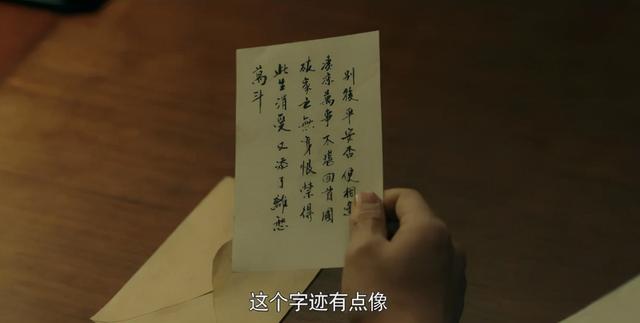 別後平安否便相逢
淒涼萬事不堪回首國
破家亡無窮恨禁得
此生消受又添了離愁
萬斗
这个字迹有点像